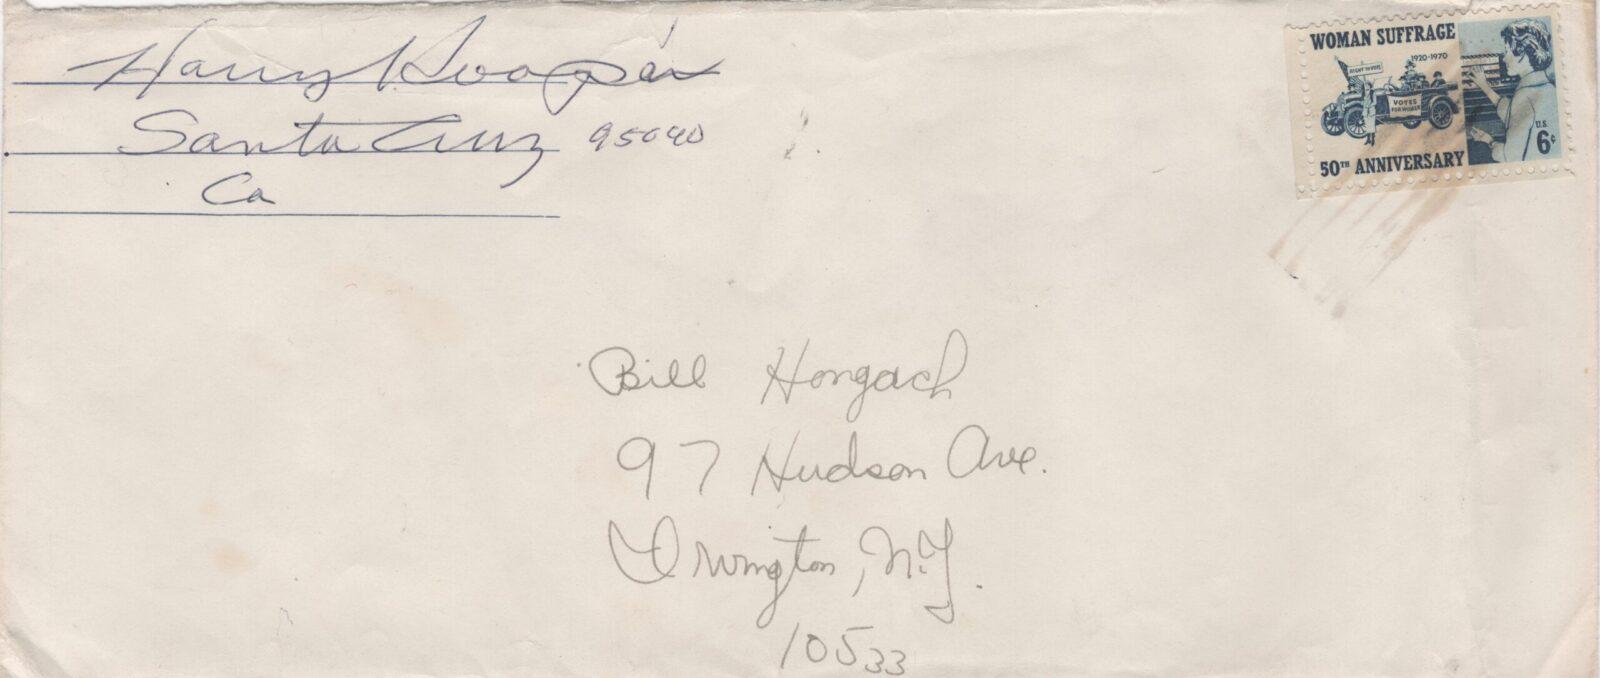 Harry Hooper
Santa Cruz 95040
Ca
WOMAN SUFFRAGE
1920-1970
VOTES
FOR WOMEN
U.S.
6¢
50TH ANNIVERSARY
Bill Hongach
97 Hudson Ave.
Irvington, N.Y.
10533